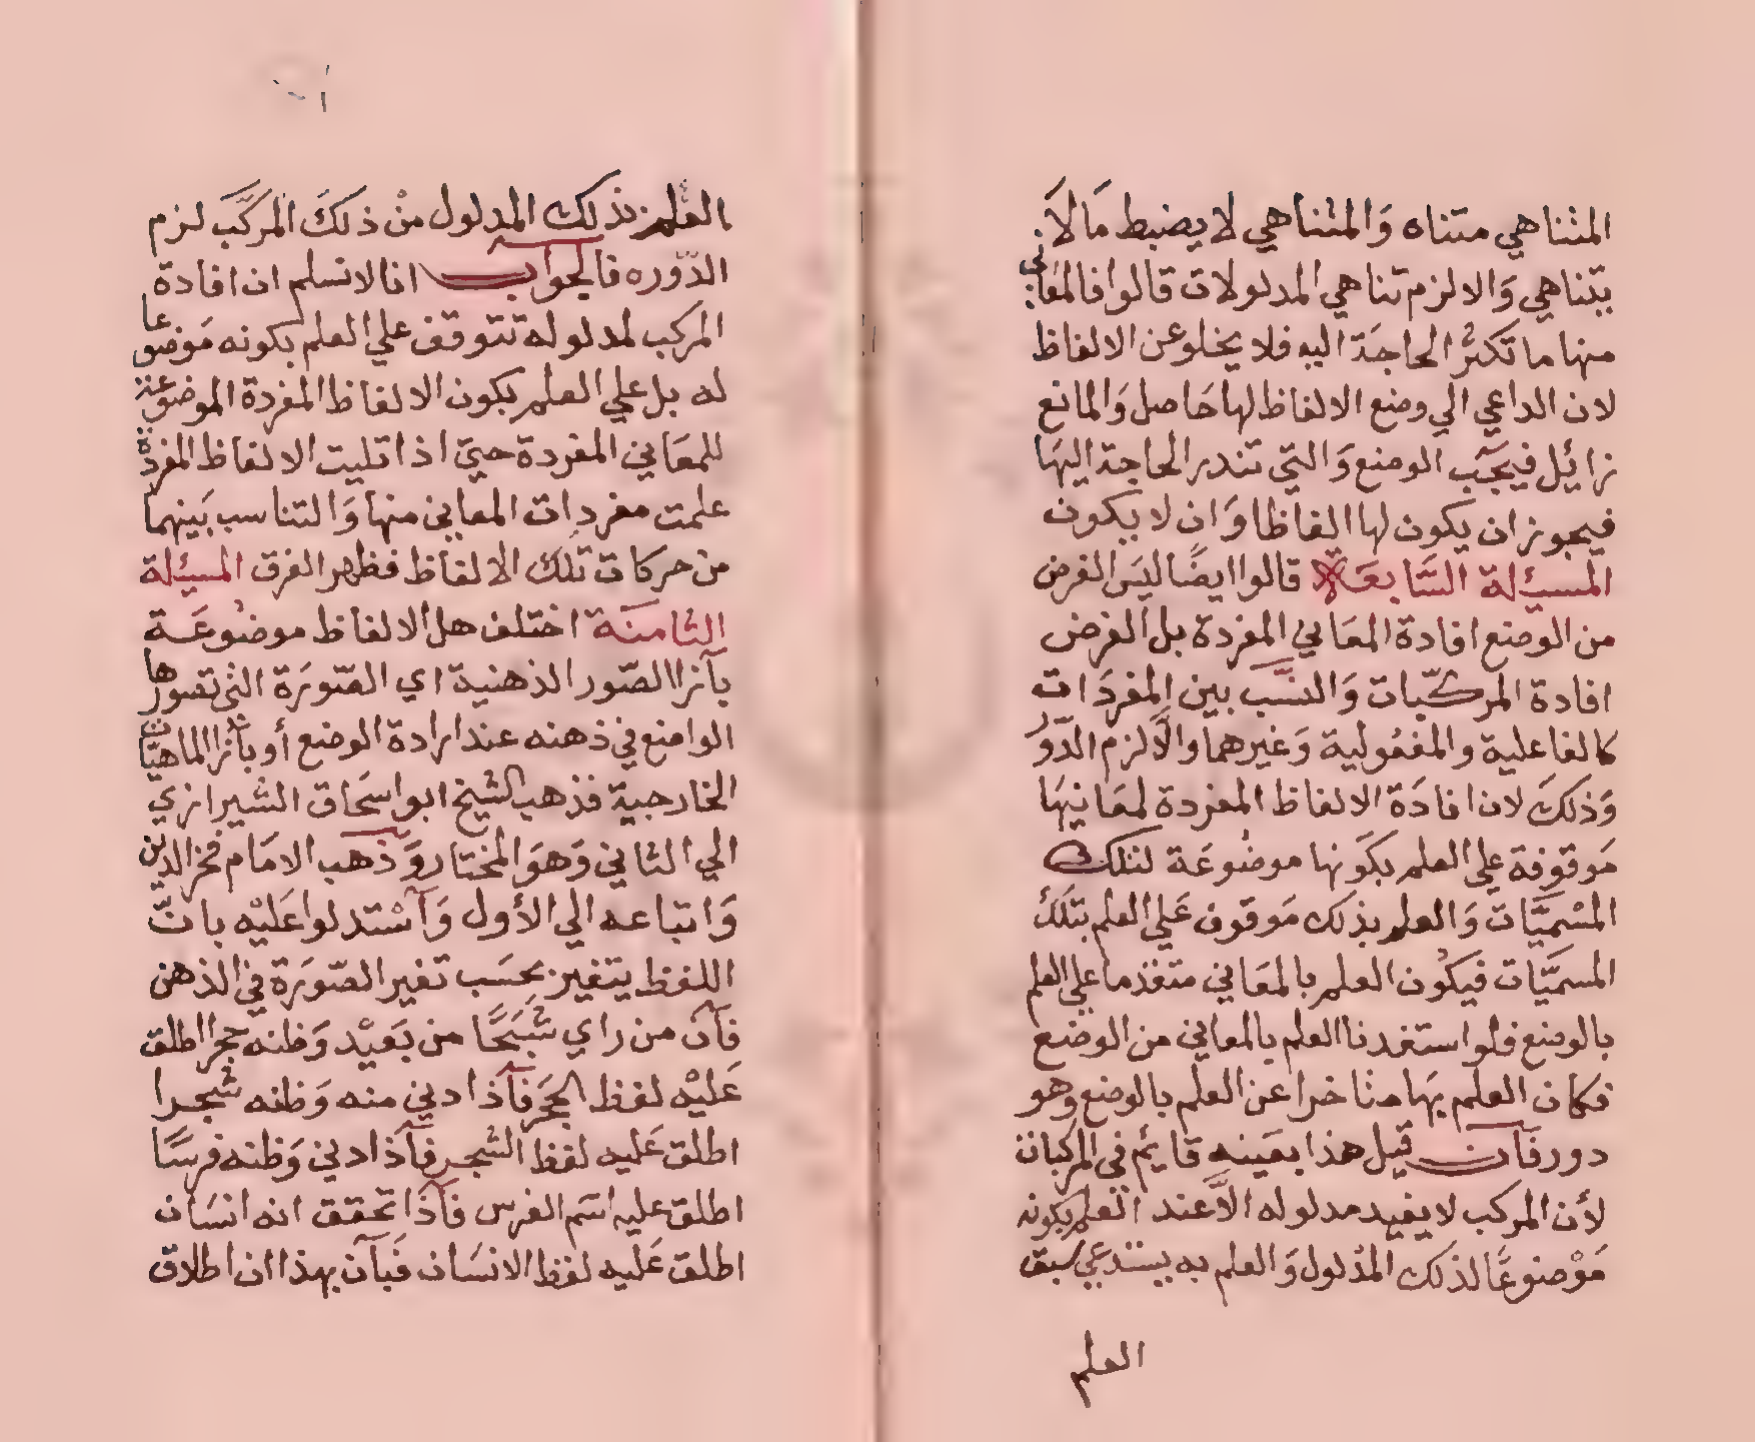 المتناهي متناه وَالمتناهي لا يضبط مَا لاَ
يتناهي وَالا لزم تناهي المدلولات قالوا فالمعاني
منها ما تكثرُ الحاجَة اليه فلا يخلو عن الالفاظ
لان الداعي الي وضع الالفاظ لها حَاصل وَالمانع
زائيل فيجَب الوضع وَالتي تندر الحاجة اليهَا
فيجوز ان يكون لها الفاظا وَان لا يكون
المسئلة السَّابعَة قالوا ايضًا ليسَ الغرض
من الوَضع افادة المعَاني المفردة بل الغرض
افادة المركّبات وَالنسَّب بين المفردَات
كالفاعلية والمفعُولية وَغيرهما والاَّ لزم الدّوَر
وَذلكَ لان افادَة الالفاظ المفردة لمعَانيهَا
مَوقوفة علي العلم بكَونها موضُوعَة لتلك
المسْميَّات وَالعلم بذلك مَوقوف عَلي العلم بتلَك
المسميَّات فيكوُن العلم بالمعَاني متقدما علي العلم
بالوضع فلو استفدنا العلم بالمعاني من الوضع
فكان العلم بهَا متاخرا عن العلم بالوضع وهو
دور فآن قيل هذا بعَينه قائم في المركبات
لأن المركب لا يفيد مدلوله الاَّ عند العلم بكونه
مَوْضوعًا لذلك المدْلول وَالعلم به يستدعي سبق
العلم
العلم بذلك المدلول منْ ذلكَ المركَّبَ لزم
الدّوره فالجواب انا لا نسلم ان افادة
المركب لمدلوله تتوقف علي العلم بكونه مَوضوعا
له بل علي العلم بكون الالفاظ المفردة الموضوعة
للمعَاني المفردة حتي اذا تليت الالفاظ المفردة
علمت مفردات المعاني منها وَالتناسب بَينهما
من حركات تلك الالفاظ فظهر الفرق المسئلة
الثامنَة اختلف هل الالفاظ موضُوعَة
بآزا الصّور الذهنية اي الصّورَة التي تصورها
الواضع في ذهنه عند ارادة الوضع أو بآزا الماهيّات
الخارجية فذهب الشيخ ابو اسحَاق الشيرازي
الي الثاني وَهوَ المختار وَذهب الامَام فخر الدين
وَاتباعه الي الأول وَآسْتدلوا عَليْه بانّ
اللفظ يتغير بحسَب تغير الصّورَة في الذهن
فآن من راي شَبَحًا من بَعيْد وَظنه حجرا اطلق
عَليْه لفظ الحجَر فآذا دني منه وَظنه شجرا
اطلق عَليه لفظ الشجر فآذا دني وَظنه فرسًا
اطلق عليه اسَم الفرس فآذا تحقق انه انسَان
اطلق عَليه لفظ الانسَان فبَآن بهذا ان اطلاق